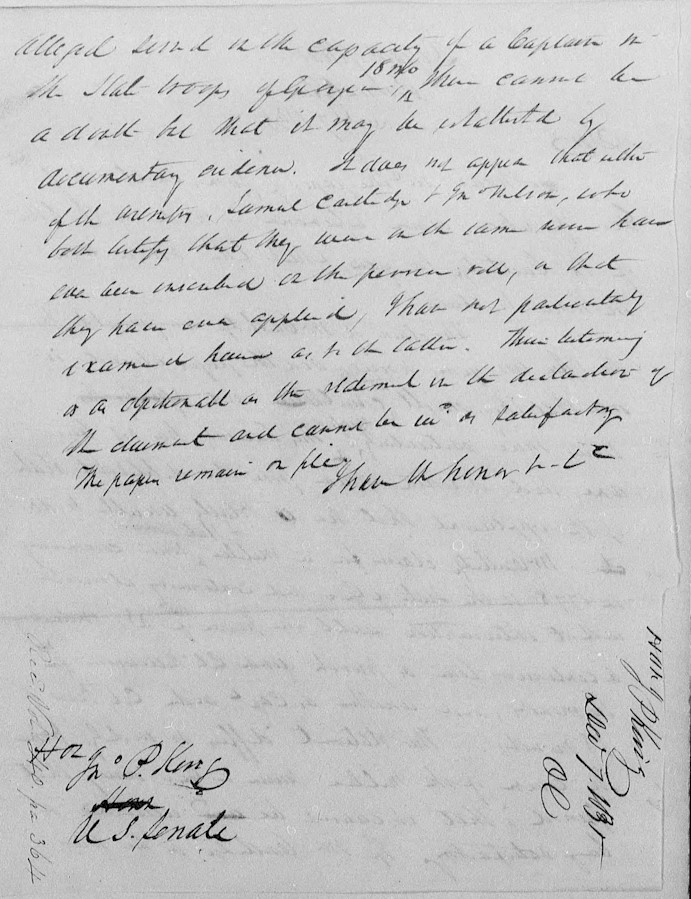 alleged served in the capacity of a Captain in
the State troops of Georgia 18 mo there cannot be
a doubt but that it may be established by
documentary evidence. It does not appear that either
of the witnesses, Samuel Cartledge & Jno Wilson, who
both certify that they were in the same service have
ever been inscribed on the pension roll, or that
they have ever applied, I have not particularly
examined however as to the latter. Their testimony
is as objectionable as the statement in the declaration of
the claimant and cannot be as satisfactory
The papers remain on file.
I have the honor
Hon
Jno P. King
U S. Senate
Jno P King
Dec 7 183
Rec pa 364